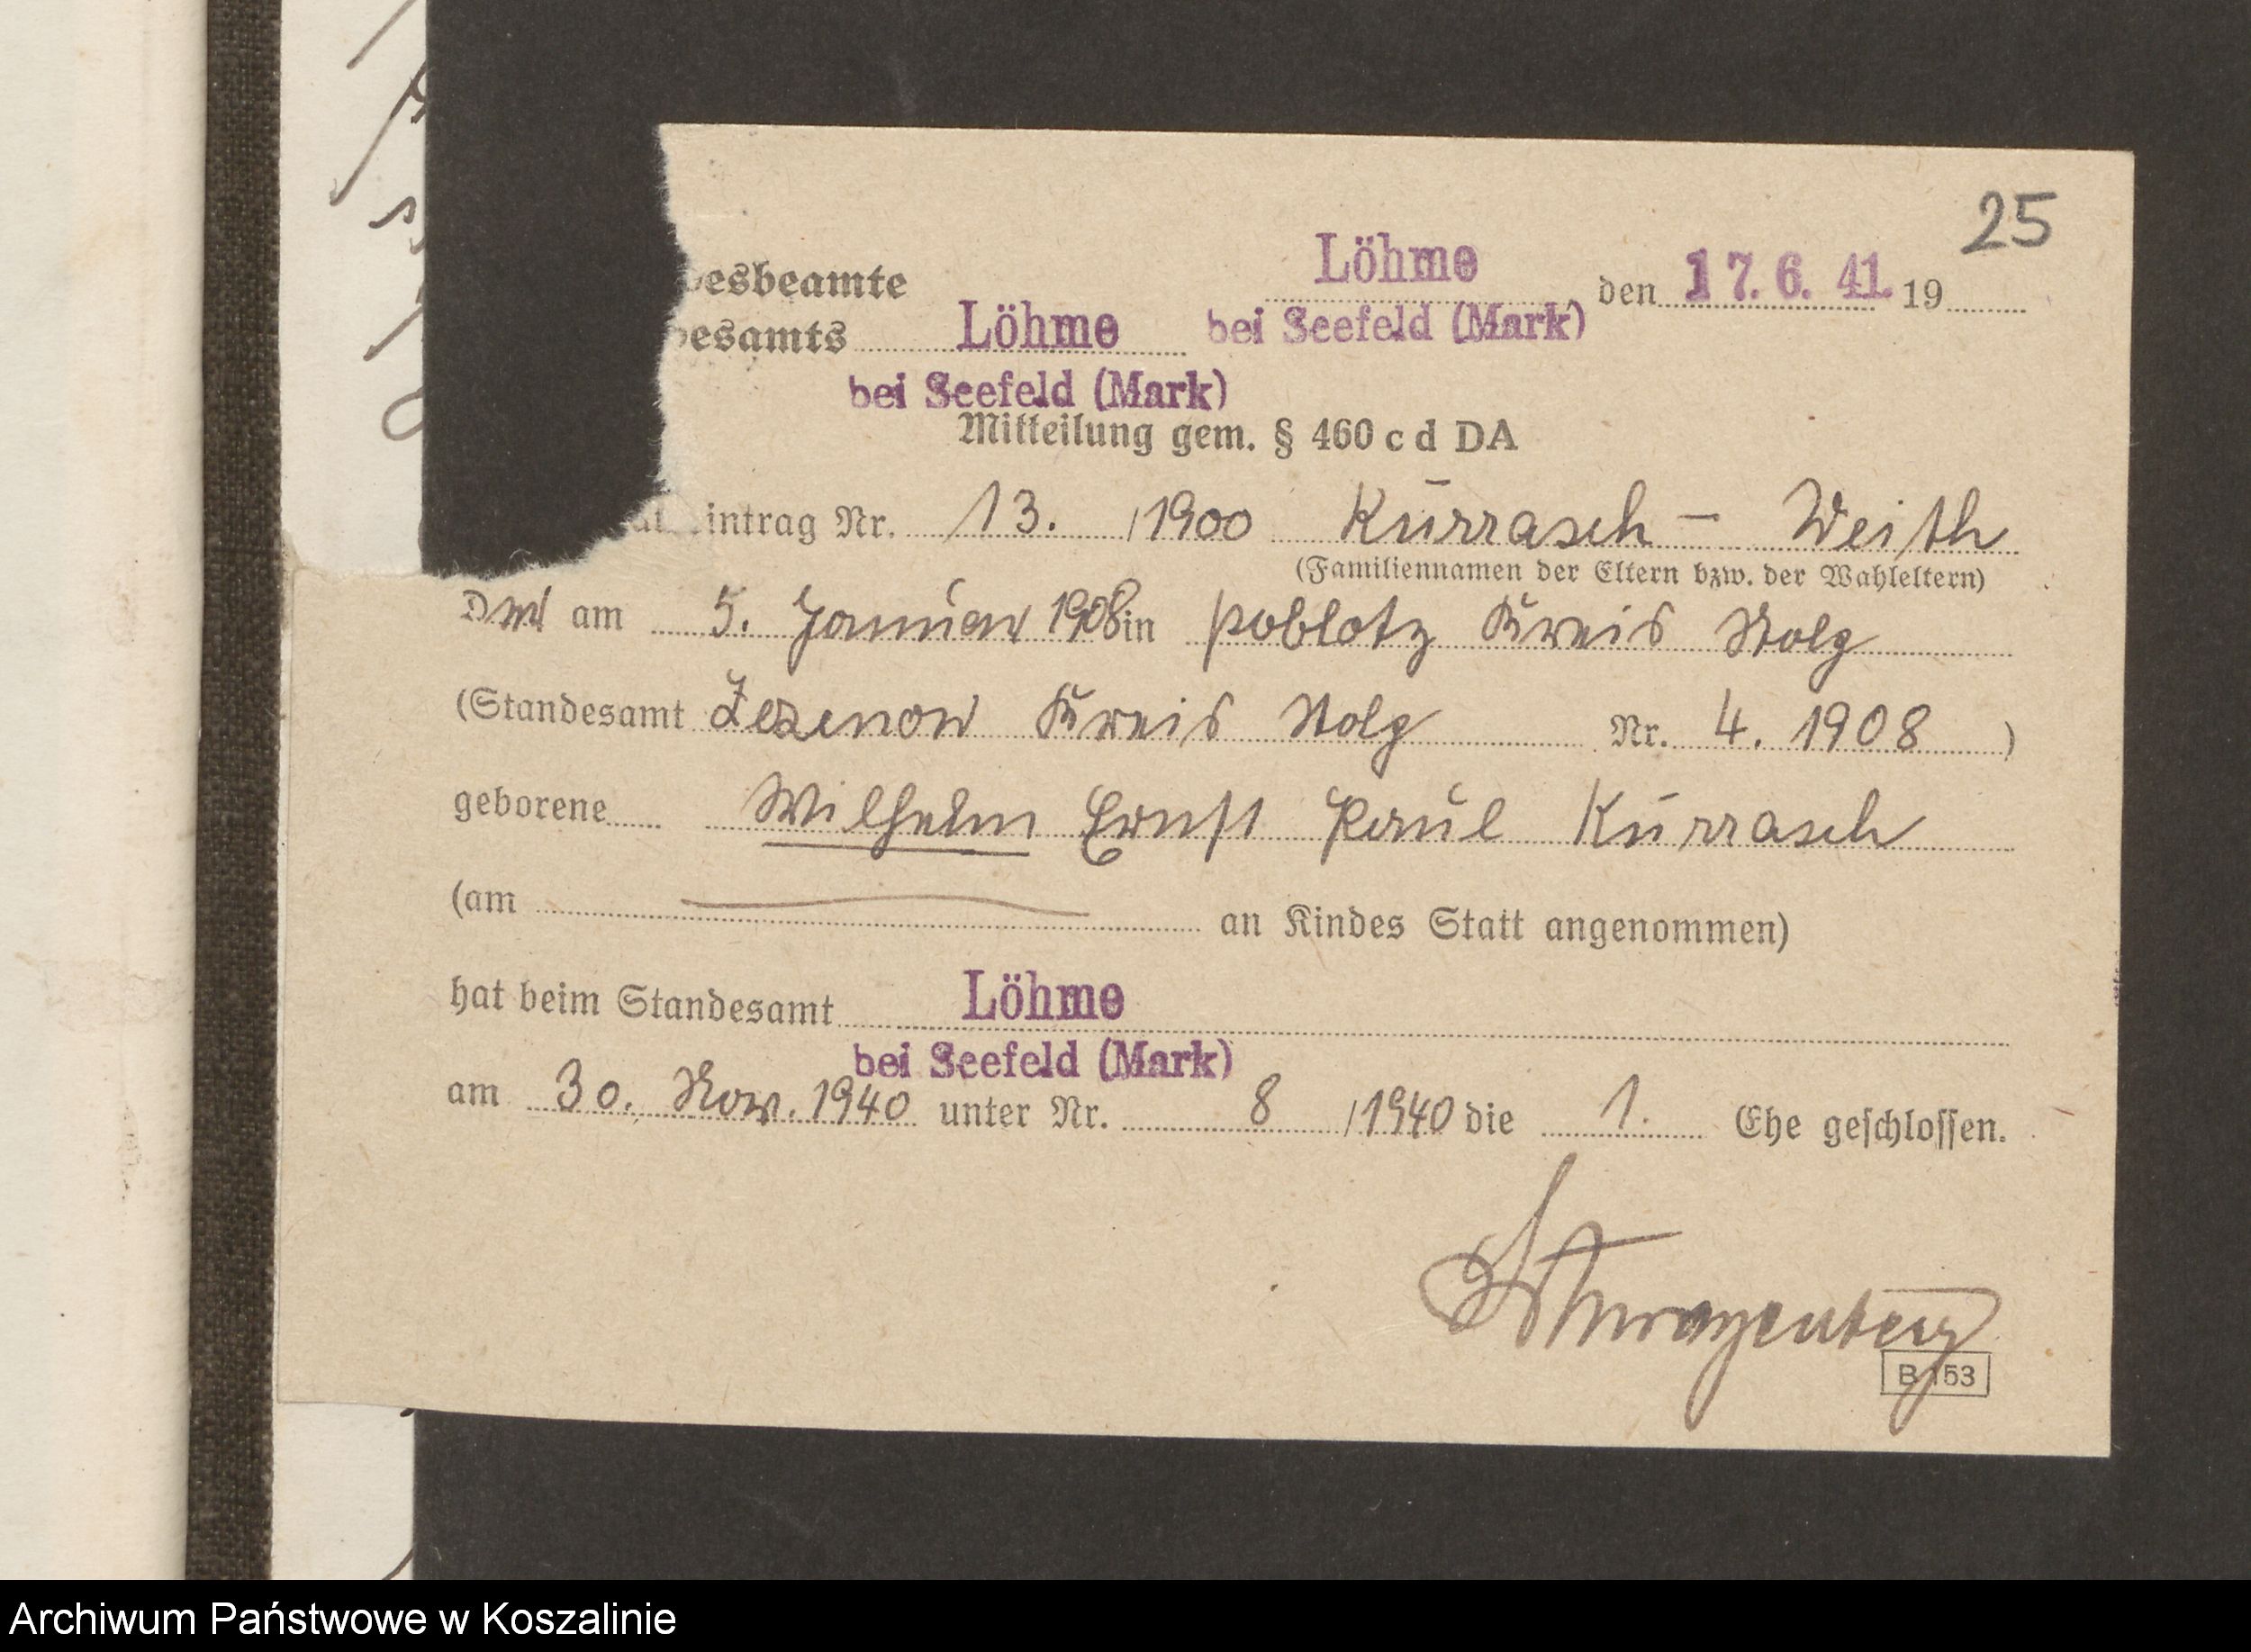 25
Löhme
bei Seefeld (Mark) den 17. 6. 41. 19
esbeamte
esamts Löhme
bei Seefeld (Mark)
Mitteilung gem. § 460 c d DA
intrag Nr. 13. /1900 Kurrasch – Weith
(Familiennamen der Eltern bzw. der Wahleltern)
am 5. Januar 1908 in Poblotz Kreis Stolp
(Standesamt Zezenow Kreis Stolp Nr. 4. 1908 )
geborene Wilhelm Ernst Paul Kurrasch
(am an Kindes Statt angenommen)
hat beim Standesamt Löhme
bei Seefeld (Mark)
am 30. Nov. 1940 unter Nr. 8 /1940 die 1. Ehe geschlossen.
B 153
Archiwum Państwowe w Koszalinie